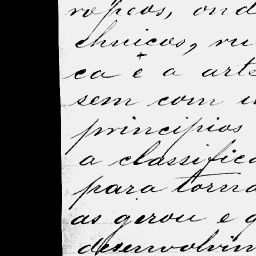 ropeos, ond
chnicos, ru
ca é a arte
sem com u
principios
a classifica
para torna
as gerou e g
desenvolvim